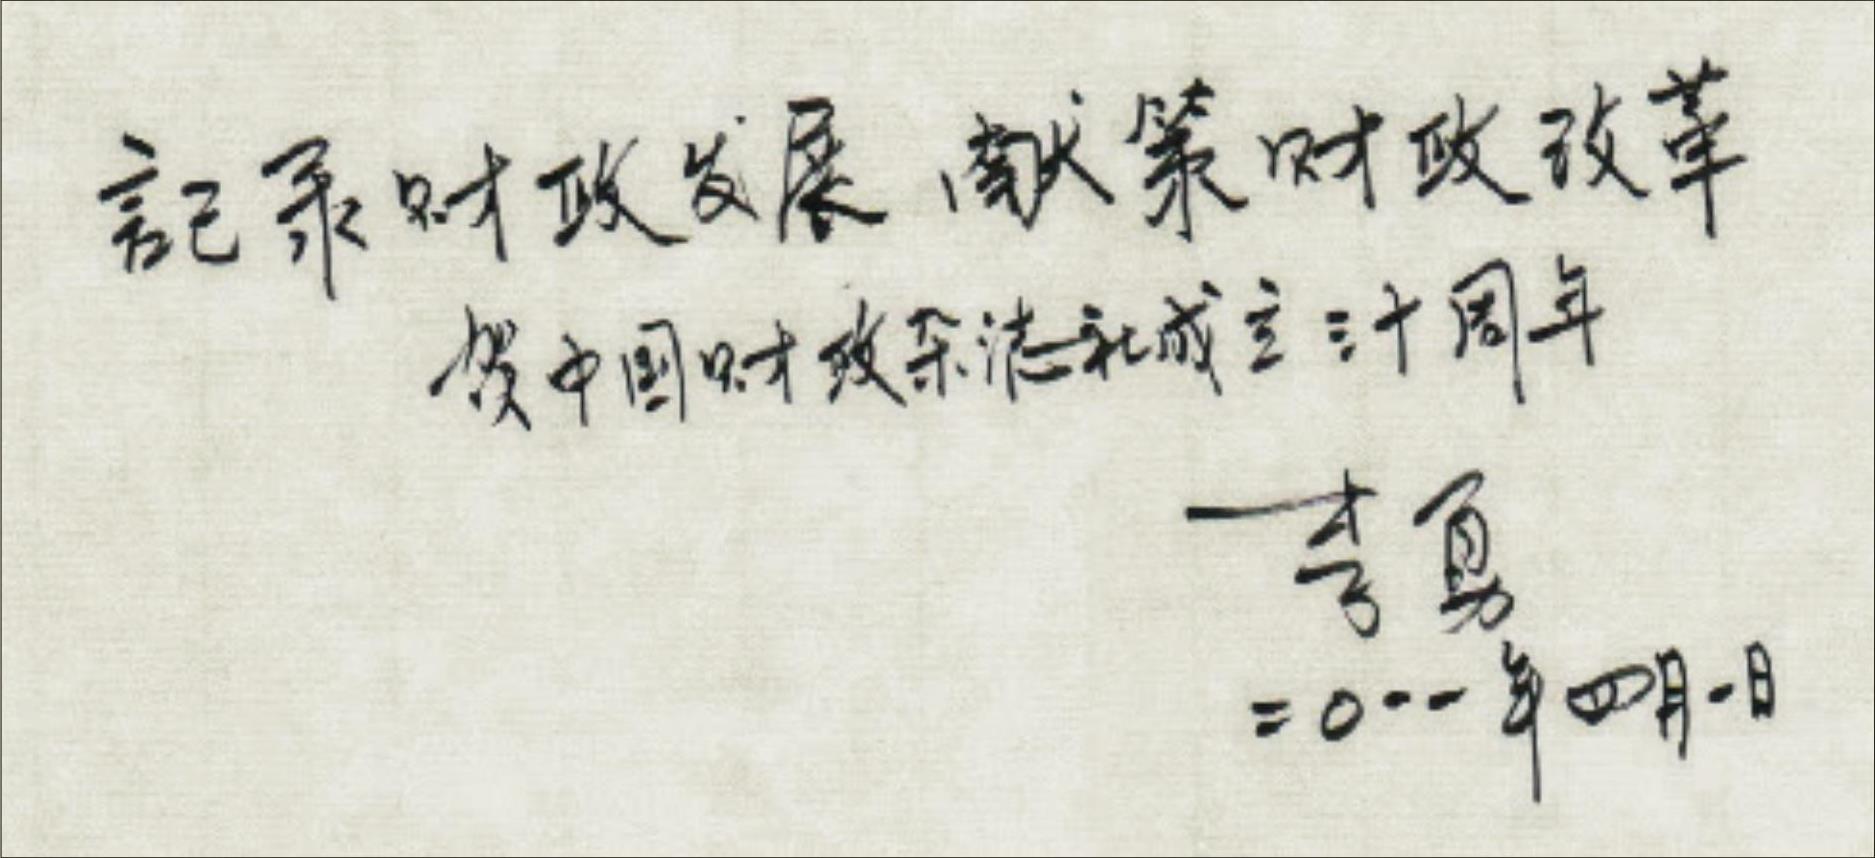 記录财政发展 献策财政改革
贺中国财政杂志社成立三十周年
李勇
二〇一一年四月一日